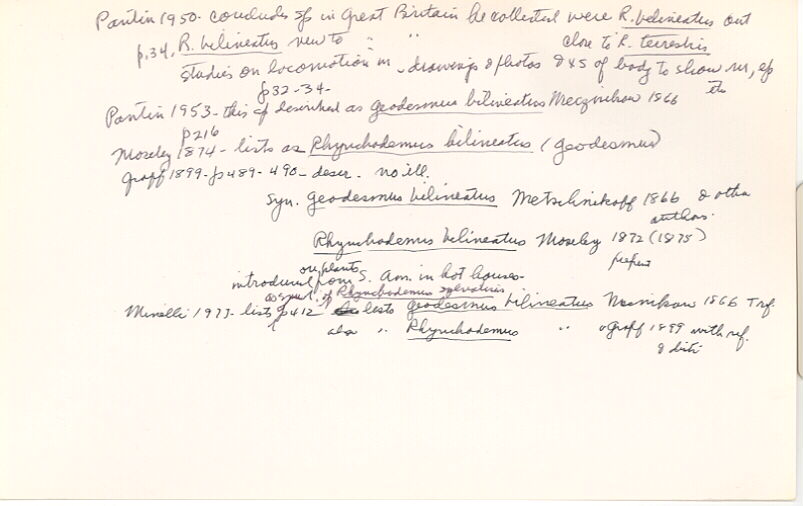 Pantin 1950- concludes sp in Great Britain he collected were R. bilineatus out
p.34, R. bilineatus new to " " close to R. terrestris
studies on locomotion in - drawings & photos & xs of body to show m, ep
p32-34- etc
Pantin 1953- this sp described as Geodesmus bilineatus Mecznikow 1866
p216
Moseley 1874- lists as Rhynchodemus bilineatus (Geodesmus)
Graff 1899- p489-490- descr. no ill.
Syn. Geodesmus bilineatus Metschnikoff 1866 & other
authors.
Rhynchodemus bilineatus Moseley 1872 (1875)
on plants
introduced from S. Am. in hot houses-
as syn. of Rhynchodemus sylvaticus
Minelli 1977- lists p412 lists Geodesmus bilineatus 1866 ref
also " Rhynchodemus " Graff 1899 with ref.
& dist